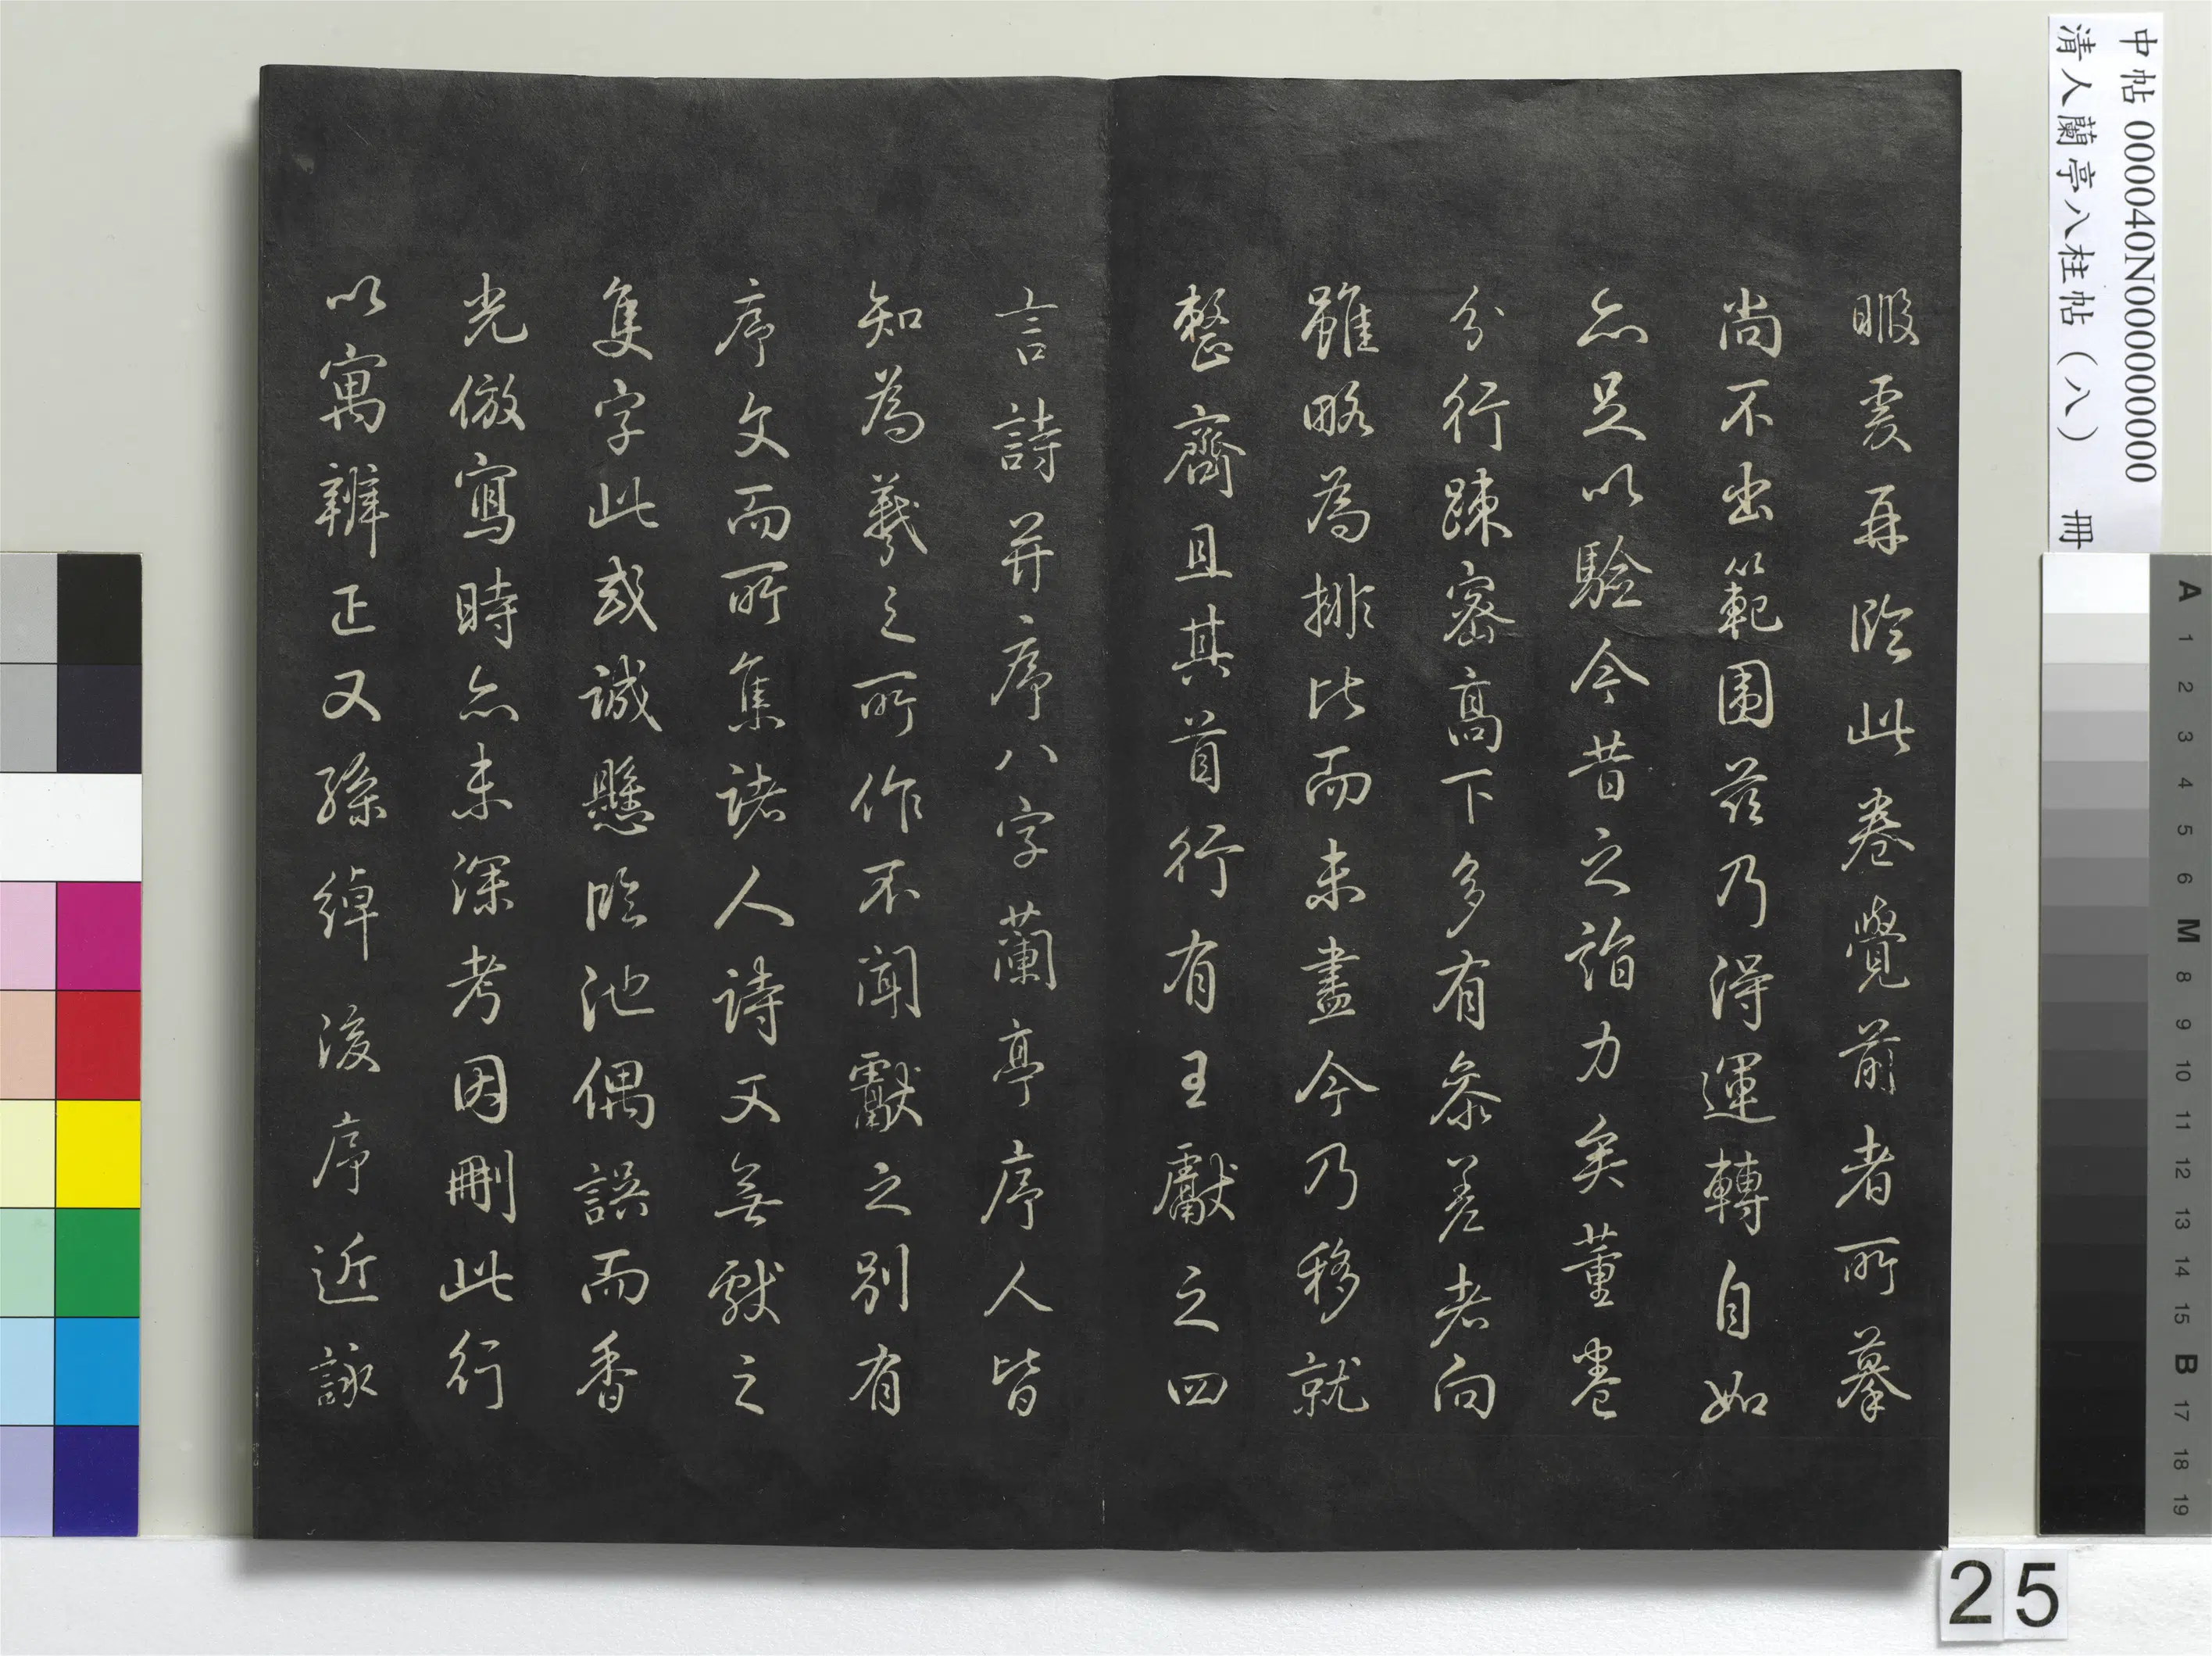 暇爰再臨此卷覺前者所摹
尚不出範圍茲乃得運轉自如
亦足以驗今昔之詣力矣董卷
分行疎密高下多有參差者向
雖略為排比而未盡今乃移就
整齊且其首行有王獻之四
言詩并序八字蘭亭序人皆
知為羲之所作不聞獻之別有
序文而所集諸人詩又無獻之
隻字此或誠懸臨池偶誤而香
光倣寫時亦未深考因刪此行
以寓辨正又孫綽後序近詠
中帖 000040N000000000
清人蘭亭八柱帖(八) 冊
A 1 2 3 4 5 6 M 8 9 10 11 12 13 14 15 B 17 18 19
25